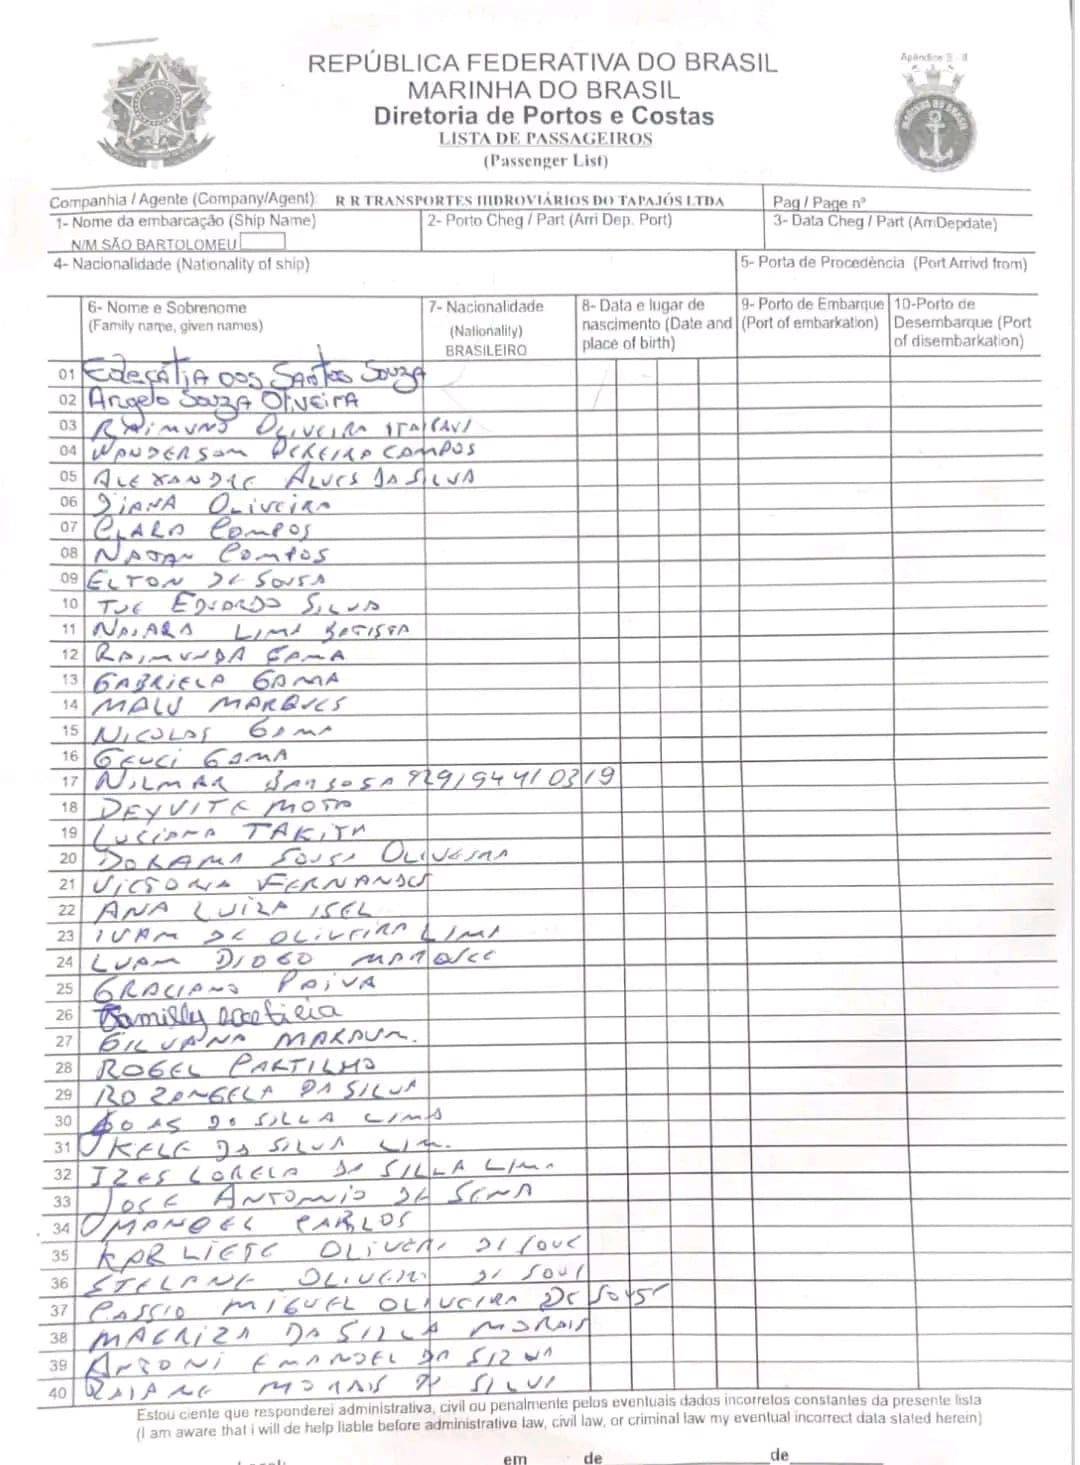 Apêndice 5 - II
MARINHA DO BRASIL
REPÚBLICA FEDERATIVA DO BRASIL
MARINHA DO BRASIL
Diretoria de Portos e Costas
LISTA DE PASSAGEIROS
(Passenger List)
Companhia / Agente (Company/Agent): R R TRANSPORTES HIDROVIÁRIOS DO TAPAJÓS LTDA
Pag / Page nº
1- Nome da embarcação (Ship Name)
N/M SÃO BARTOLOMEU
2- Porto Cheg / Part (Arri Dep. Port)
3- Data Cheg / Part (ArriDepdate)
4- Nacionalidade (Nationality of ship)
5- Porta de Procedência (Port Arrivd from)
6- Nome e Sobrenome
(Family name, given names)
7- Nacionalidade
(Nationality)
BRASILEIRO
8- Data e lugar de
nascimento (Date and
place of birth)
9- Porto de Embarque
(Port of embarkation)
10-Porto de
Desembarque (Port
of disembarkation)
01 dos Santos Souza
02 Angelo Souza Oliveira
03 RAIMUNO OLIVEIRA
04 WANDERSON PEREIRA CAMPOS
05 ALEXANDRE ALVES DA SILVA
06 DIANA OLIVEIRA
07 CLARA CAMPOS
08 NATAN CAMPOS
09 ELTON DE SOUSA
10 EDUARDO SILVA
11 NAIARA LIMA BATISTA
12 RAIMUNDA GAMA
13 GABRIELA GAMA
14 MALU MARQUES
15 NICOLAS GAMA
16 GEUCI GAMA
17 NILMAR BARBOSA
18 DEYVITE MOTA
19 LUCIANA TAKITA
20 DORAMA SOUSA OLIVEIRA
21 VICTORIA FERNANDES
22 ANA LUIZA ISEL
23 IVAM DE OLIVEIRA LIMA
24 LUAM DIOGO
25 GRACIANO PAIVA
26
27 GILVANA
28 ROGEL PARTILHO
29 ROZANGELA DA SILVA
30 DA SILLA LIMA
31 KELE DA SILVA LIMA
32 DA SILLA LIMA
33 JOSE ANTONIO DE SENA
34 MANOEL CARLOS
35 KARLIETE
36 STELANE
37 CASSIO MIGUEL OLIVEIRA DE SOUSA
38 DA SILLA MORAIS
39 ANTONI EMANOEL DA SILVA
40 RAIANE MORAIS
Estou ciente que responderei administrativa, civil ou penalmente pelos eventuais dados incorretos constantes da presente lista
(I am aware that i will de help liable before administrative law, civil law, or criminal law my eventual incorrect data stated herein)
em de de